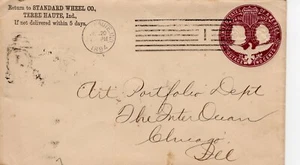 Return to STANDARD WHEEL CO.,
TERRE HAUTE, Ind.,
If not delivered within 5 days.
Art Portfolio Dept
The Inter Ocean
Chicago
Ill